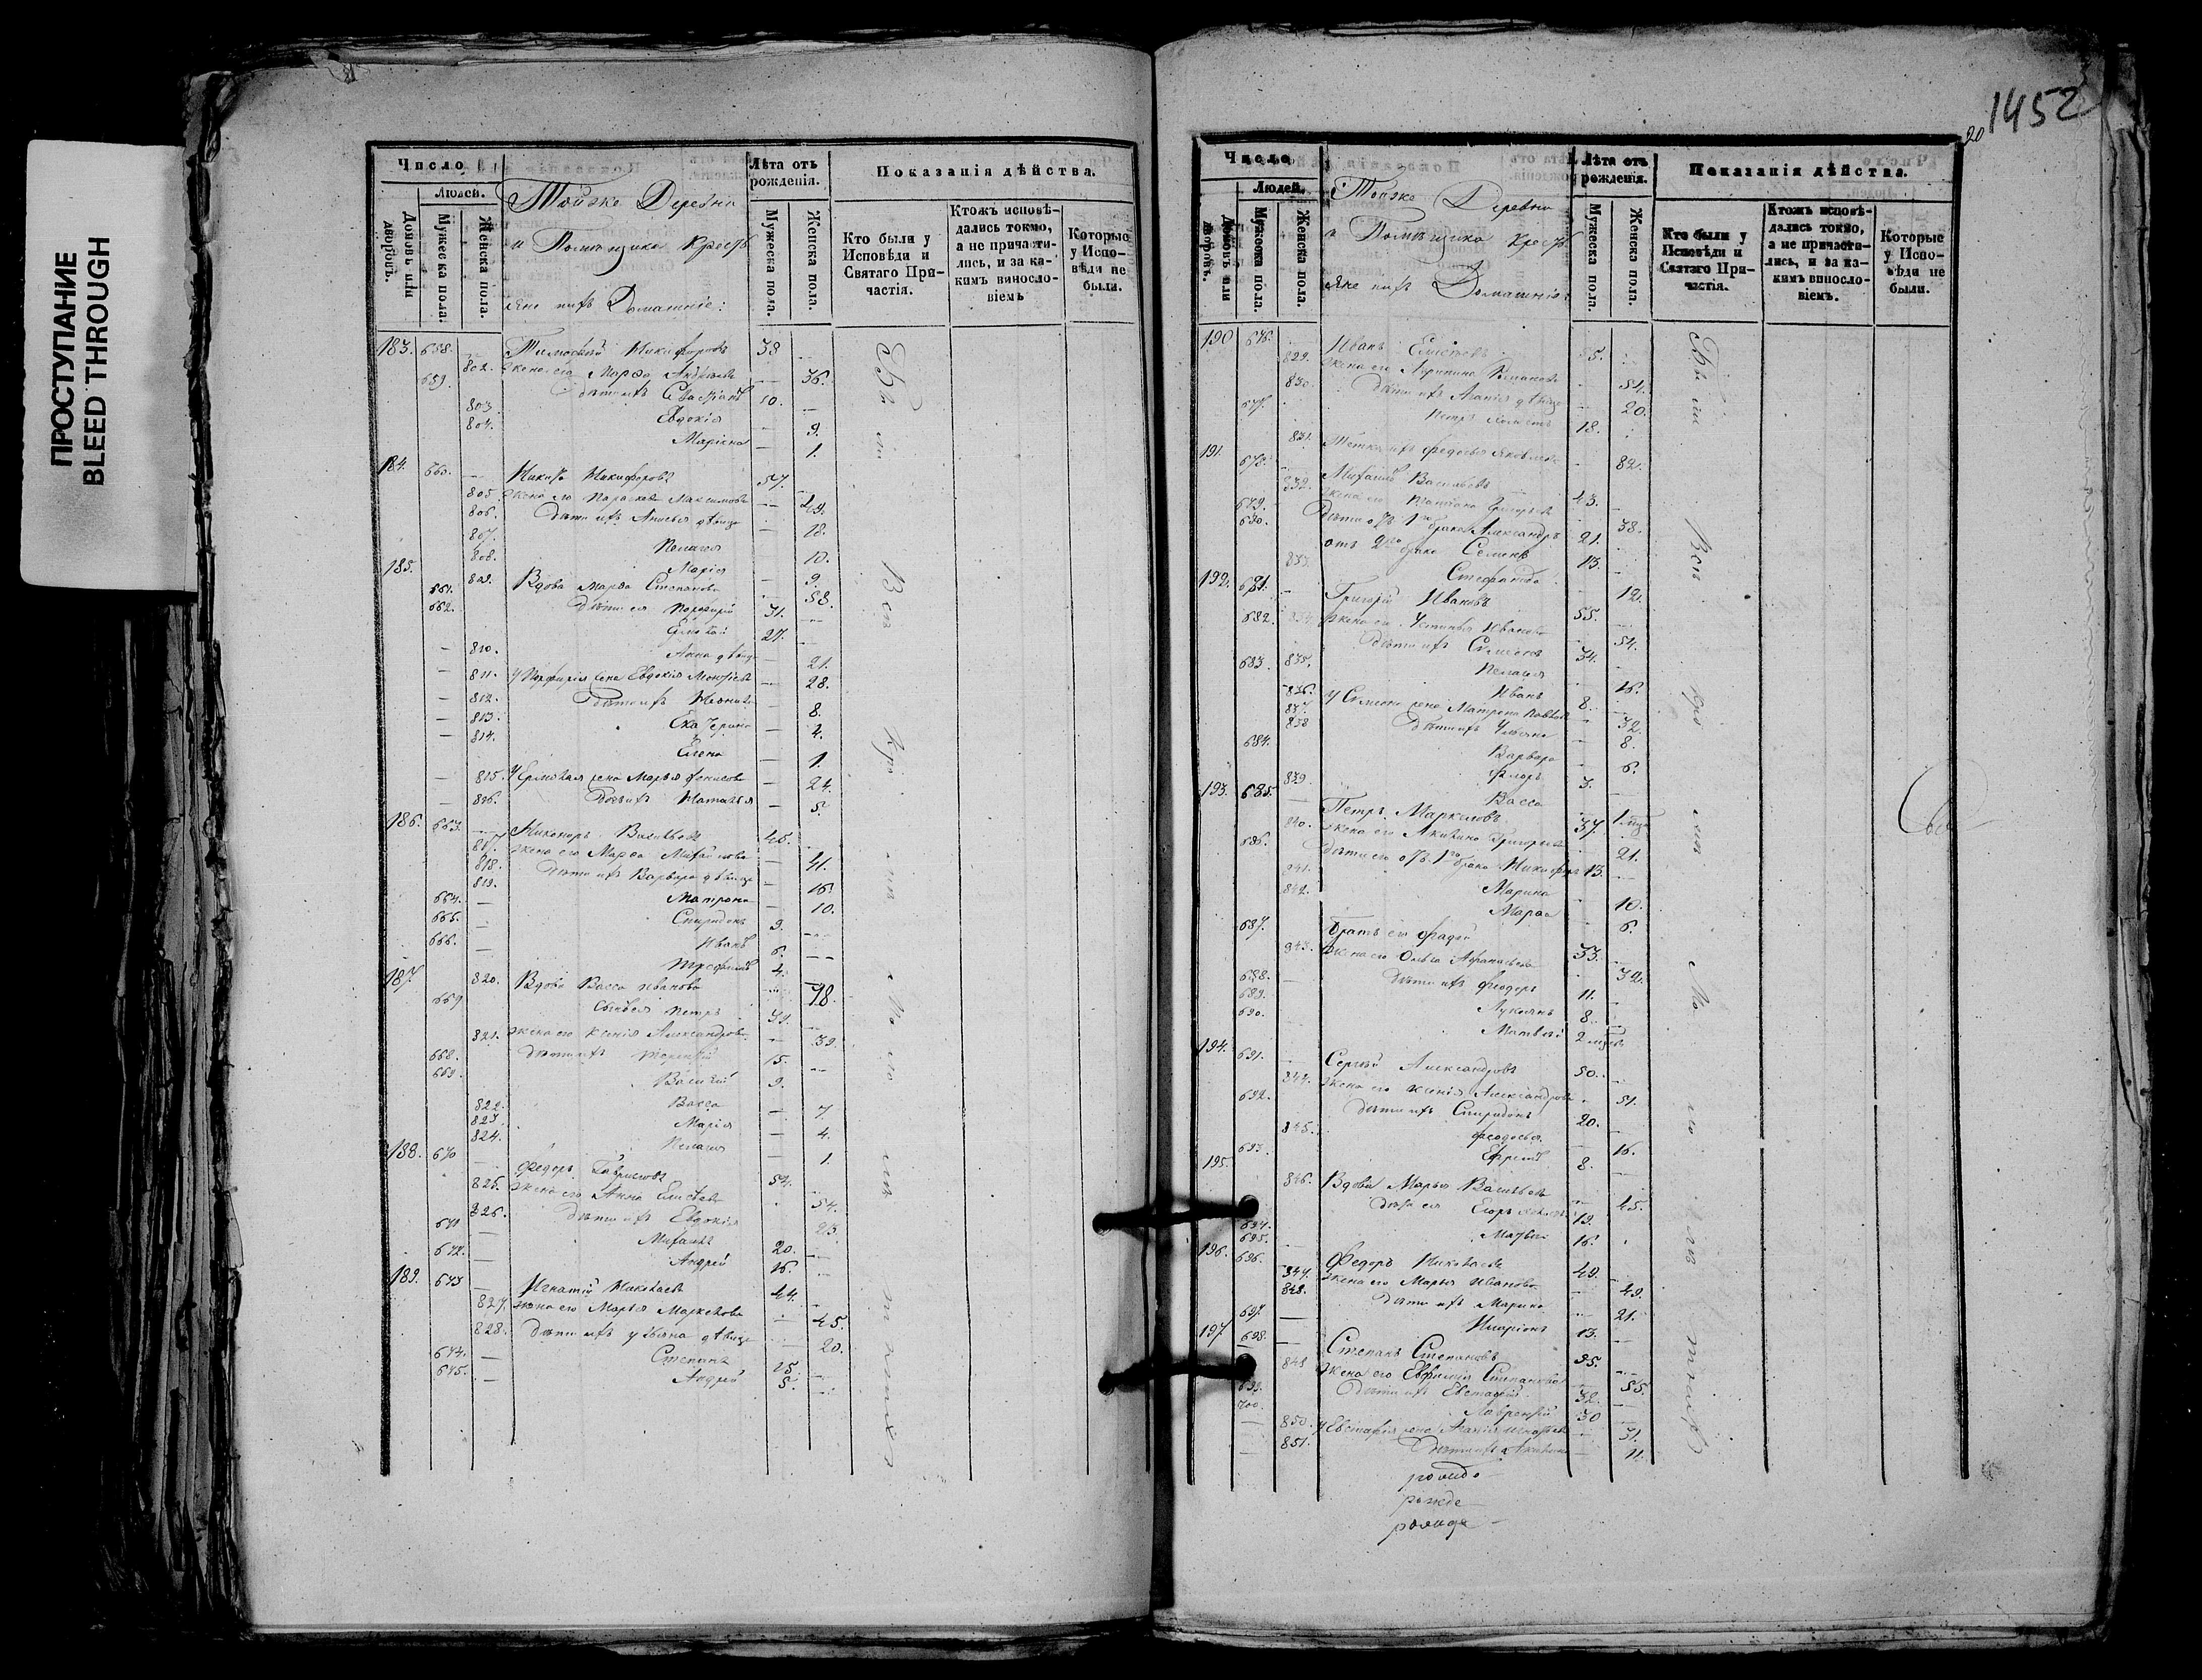 ПРОСТУПАНИЕ
BLEED THROUGH
Число
Людей.
Домовъ или дворовъ.
Мужеска пола.
Женска пола.
Тойже Деревни
и Помѣщика Кресть
яне ихъ Домашніе:
Лѣта отъ рожденія.
Мужеска пола.
Женска пола.
Показанія дѣйства.
Кто были у Исповѣди и Святаго Причастія.
Ктожъ исповѣдались токмо, а не причастились, и за какимъ винословіемъ
Которые у Исповѣди не были.
183. 658. Тимофей Никифоровъ 38
802. жена его Марѳа 36.
659. дѣти ихъ 10.
803 Евдокія 9.
804. Маріана 1.
184. 660. Никита Никифоровъ 57.
805. жена его Параскева Максимова 49.
806. дѣти ихъ Анисья дѣвица 18.
807. Пелагея 10.
808. Марія 9.
185. 809. Вдова Марѳа Степанова 58.
661. дѣти ея Порфирій 31.
662. Ермолай 27.
810. Анна дѣвица 21.
811. у Порфирія жена Евдокія 28.
812. дѣти ихъ 8.
813. Екатерина 4.
814. Елена 1.
815. у Ермолая жена Марья Денисова 24.
816. дочь ихъ Наталья 5.
186. 663. Никаноръ Васильевъ 46.
817. жена его Марѳа Михайлова 41.
818. дѣти ихъ Варвара дѣвица 16.
819. Матрона 10.
664. Спиридонъ 9.
665. Иванъ 6.
666. Трофимъ 4.
187. 820. Вдова Васса Иванова 78.
669 сынъ ея Петръ 39.
821. жена его Ксенія Александрова 39.
668. дѣти ихъ Терентій 15.
669. Василій 9.
822. Васса 7
823. Марія 4.
824. Пелагея 1.
188. 670 Федоръ Гавриловъ 54.
825. жена его Анна Елисѣева 54.
826. дѣти ихъ Евдокія 23
671 Михаилъ 20.
672. Андрей 16.
189. 673 Игнатій Николаевъ 44.
827. жена его Марья Маркелова 45.
828. дѣти ихъ Ульяна дѣвица 20.
674. Степанъ 15.
675. Андрей 5.
Были Вси
1452
20
Число
Людей.
Домовъ или дворовъ.
Мужеска пола.
Женска пола.
Тойже Деревни
и Помѣщика Кресть
яне ихъ Домашніе
Лѣта отъ рожденія.
Мужеска пола.
Женска пола.
Показанія дѣйства.
Кто были у Исповѣди и Святаго Причастія.
Ктожъ исповѣдались токмо, а не причастились, и за какимъ винословіемъ.
Которые у Исповѣди не были.
190 676. Иванъ Елисѣевъ 55.
829. жена его 54.
830. дѣти ихъ Агапія дѣвица 20.
677. Петръ холостъ 18.
831. Тетка ихъ Федосья Яковлева 82.
191. 678. Михаилъ Васильевъ 43.
832. жена его Татіана Григорьева 38.
679. дѣти отъ 1го брака Александръ 21.
680. отъ 2го брака Семенъ 13.
833. Стефанида 12.
192. 681. Григорій Ивановъ 55.
834. жена его Устинья Иванова 54.
682. дѣти ихъ Симеонъ 34.
835. Пелагея 16.
683 Иванъ 8.
836. у Симеона жена Матрона 32.
837. дѣти ихъ Ульяна 8.
838 Варвара 6.
684. Флоръ 3.
839. Васса 1
193. 685. Петръ Маркеловъ 37.
840. жена его Акилина Григорьева 21.
686. дѣти его отъ 1го брака Никифоръ 13.
841. Марина 10.
842. Марѳа 6.
687. братъ его Фадей 33.
843. жена его Ольга Афанасьева 32.
688. дѣти ихъ Феодоръ 11.
689. Лукіянъ 8.
690. Матвей 2
194. 691. Сергей Александровъ 50.
844. жена его Ксенія Александрова 51.
692. дѣти ихъ Спиридонъ 20.
845. Феодосья 16.
693. Ефремъ 8.
195. 846. Вдова Марья Васильева 45.
694. дѣти ея Егоръ 19.
695. Матвей 16.
196. 696. Федоръ Николаевъ 49.
847. жена его Марья Иванова 49.
848. дѣти ихъ Марина 21.
697. Иларіонъ 13.
197 698. Степанъ Степановъ 55.
849 жена его Евфимія Степанова 55.
699. дѣти ихъ Евстафій 32.
700. Лаврентій 30
850. у Евстафія жена Агапія 31.
851. дѣти ихъ Акилина 11.
Были Вси